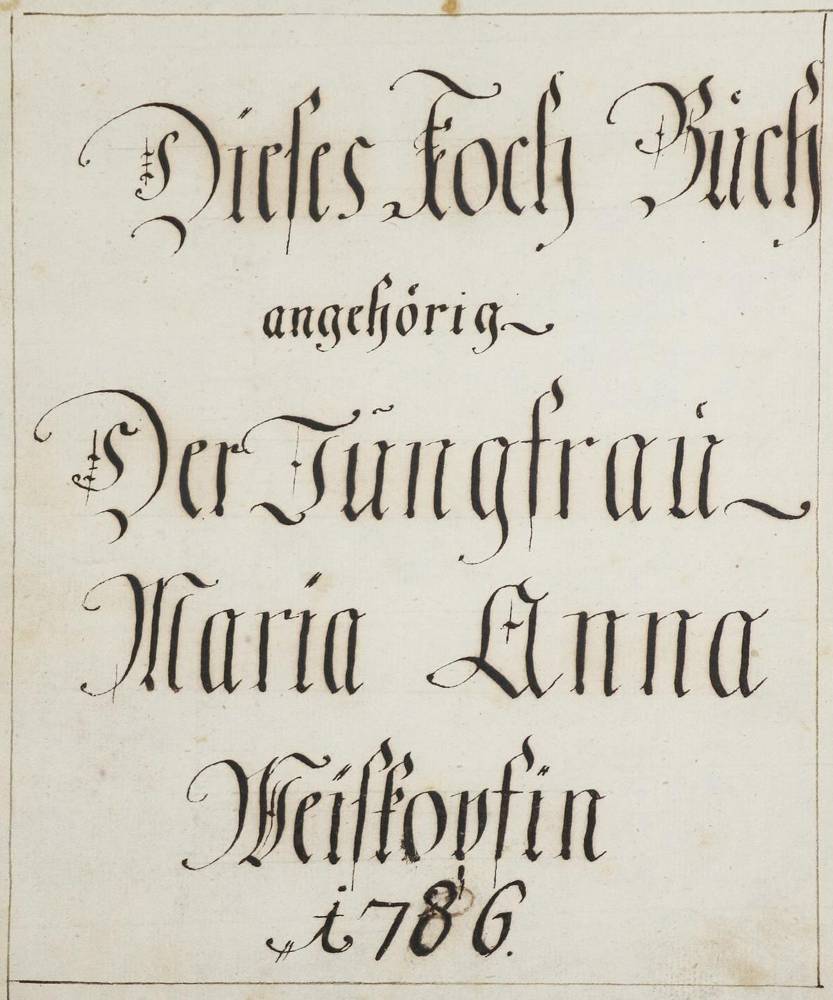 Dieses Koch Bůch
angehörig
Der Jũngfraů
Maria Anna
Weiskopfin
1786.